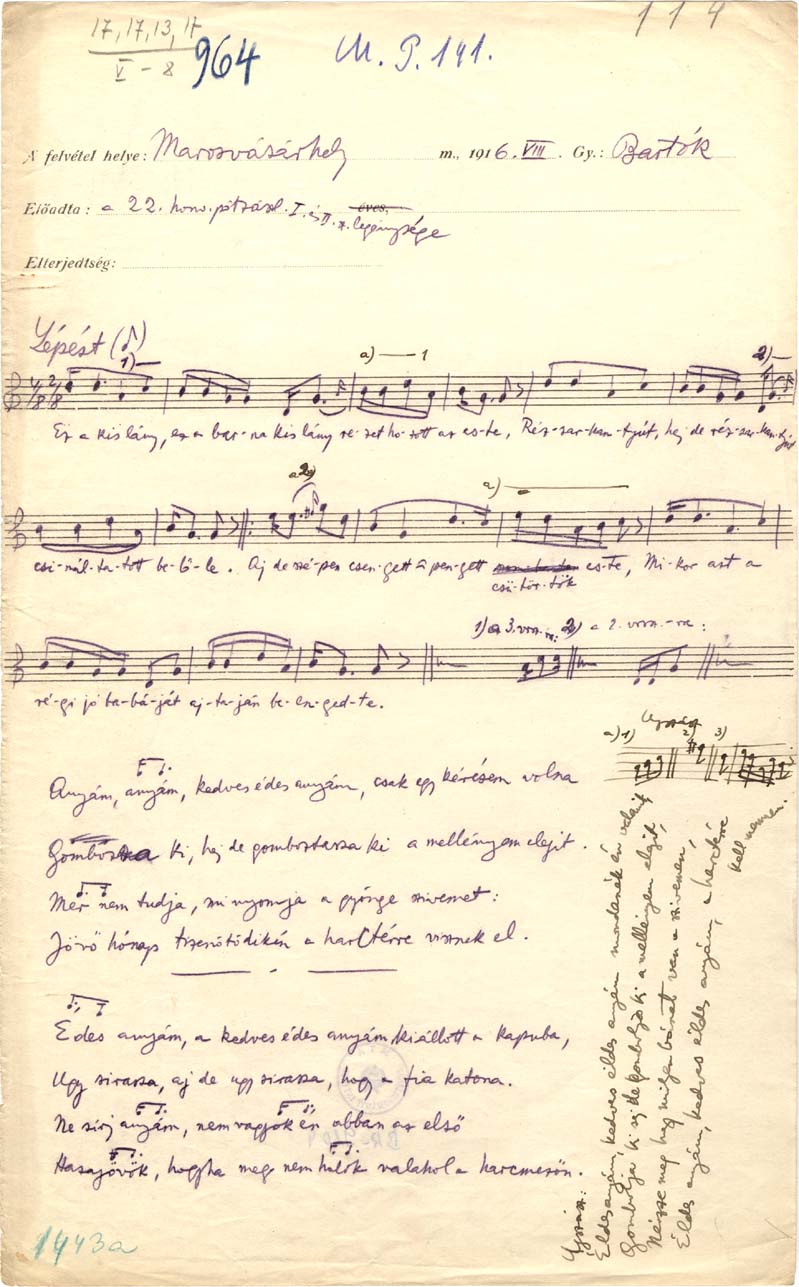 17, 17, 13, 17
V – 8
964
M. P. 141.
114
A felvétel helye: Marosvásárhely m., 1916. VIII. Gy.: Bartók
Előadta: a 22. honv. pótzászl. I. és II. éves, legénysége
Elterjedtség:
Lépést (♪)
1)
a) 1
2)
4/8 2/8
Ez a kislány, ez a bar-na kislány re-zet ho-zott az es-te, Réz-sar-kan-tyút, hej de réz-sar-kan-tyút
a)
csi-nál-ta-tott be-lő-le. Aj de szé-pen csen-gett a pen-gett es-te, Mi-kor azt a
csü-tör-tök
1) a 3. vrsz. 2) a 2. vrsz.-ra:
ré-gi jó ba-bá-ját aj-ta-ján be-en-ged-te.
a) 1) 2) 3)
Anyám, anyám, kedves édes anyám, csak egy kérésem volna
ki, hej de gomboztassa ki a mellényem elejit.
Mér nem tudja, mi nyomja a gyönge szivemet:
Jövő hónap tizenötödikén a harctérre visznek el.
Édes anyám, a kedves édes anyám kiállott a kapuba,
Ugy sirassa, aj de ugy sirassa, hogy a fia katona.
Ne sírj anyám, nem vagyok én abban az első
Hazajövök, hogyha meg nem halok valahol a harcmezőn.
Édes anyám, kedves édes anyám mondanék én valamit
Gombolja ki aj de gombolja ki a mellényem elejit,
Nézze meg hogy milyen bánat van a szivemen,
Édes anyám, kedves édes anyám, a harctérre
kell mennem.
1443a